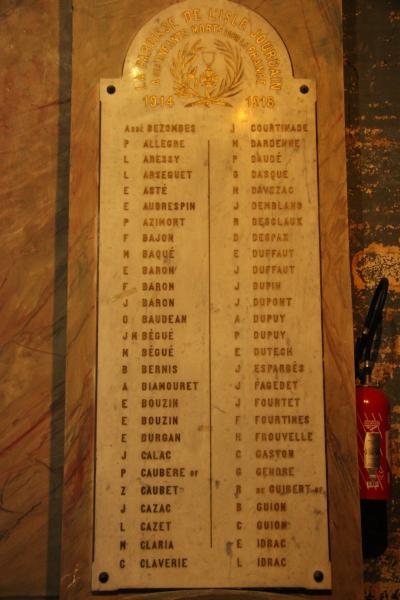 LA PAROISSE DE L'ISLE-JOURDAIN
A SES ENFANTS MORTS POUR LA FRANCE
1914 1918
Abbé BEZOMBES
P ALLEGRE
L ARESSY
L ARSEGUET
E ASTÉ
E AUBRESPIN
P AZIMONT
F BAJON
M BAQUÉ
E BARON
F BARON
J BARON
O BAUDEAN
J M BÉGUÉ
M BÉGUÉ
B BERNIS
A BIAMOURET
E BOUZIN
E BOUZIN
E BURGAN
J CALAC
P CAUBERE OF
Z CAUBET
J CAZAC
L CAZET
M CLARIA
C CLAVERIE
J COURTINADE
M DARDENNE
P DAUDÉ
G DASQUE
H DAVEZAC
J DEMBLANS
R DESCLAUX
D DESPAX
E DUFFAUT
J DUFFAUT
J DUPIN
J DUPONT
A DUPUY
P DUPUY
E DUTECH
J ESPARBÉS
J FAGEDET
J FOURTET
F FOURTINES
H FROUVELLE
C GASTON
G GENDRE
R DE GUIBERT OF
B GUION
C GUION
E IDRAC
L IDRAC